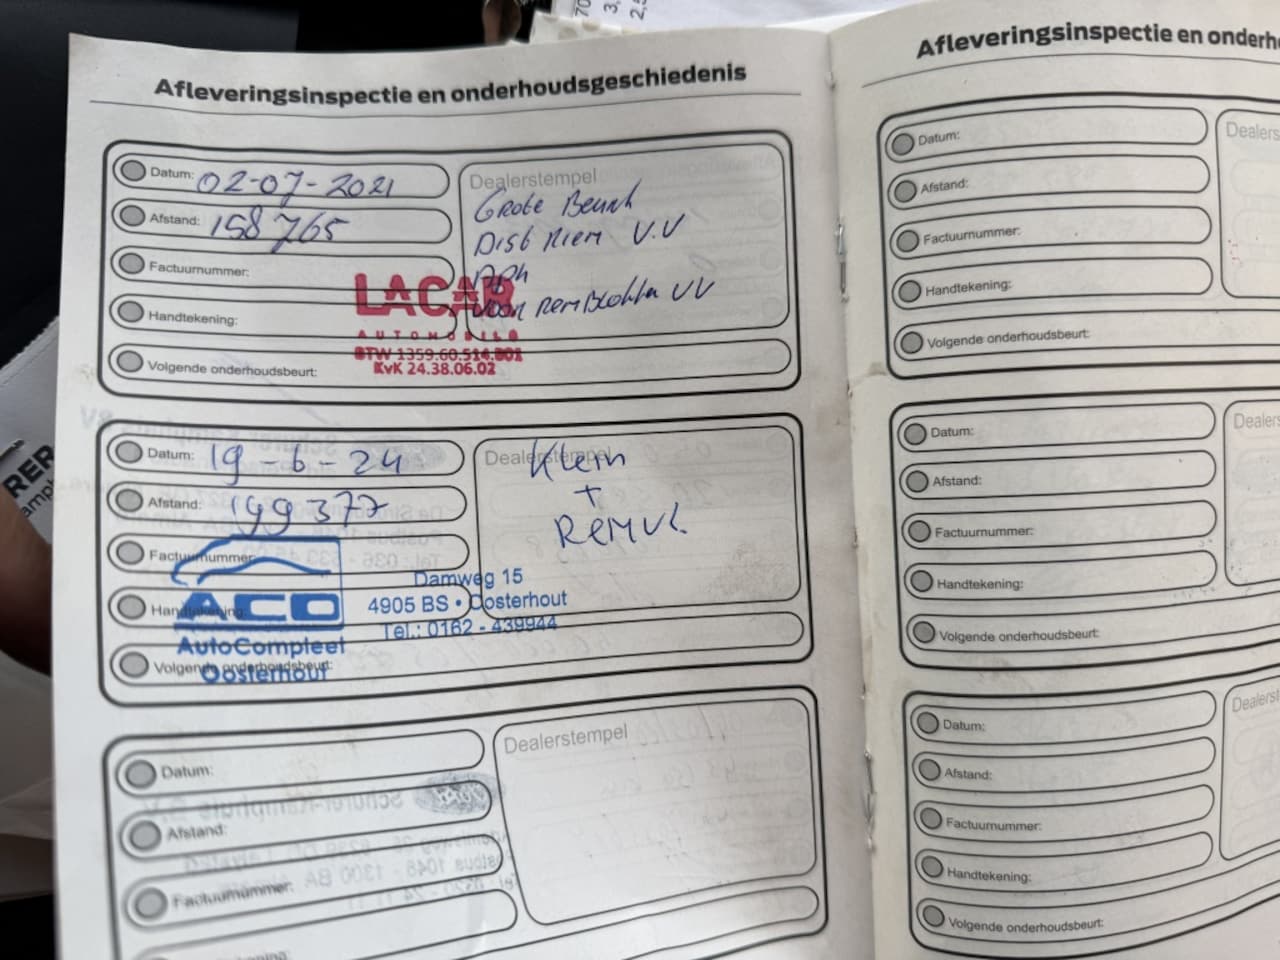 Afleveringsinspectie en onderhoudsgeschiedenis
Datum: 02-07-2021
Afstand: 158765
Factuurnummer:
Handtekening:
Volgende onderhoudsbeurt:
Dealerstempel
Grote Beurt
Dist Riem V.V
APK
Voor Remblokken VV
LACAR
AUTOMOBILE
BTW 1359.60.514.B01
KvK 24.38.06.02
Datum: 19-6-24
Afstand: 199377
Factuurnummer:
Handtekening:
Volgende onderhoudsbeurt:
Dealerstempel
Klein
+
REMVL.
ACO
AutoCompleet
Oosterhout
Damweg 15
4905 BS • Oosterhout
Tel.: 0162 - 439944
Datum:
Afstand:
Factuurnummer:
Dealerstempel
Afleveringsinspectie en onderh
Datum:
Afstand:
Factuurnummer:
Handtekening:
Volgende onderhoudsbeurt:
Dealers
Datum:
Afstand:
Factuurnummer:
Handtekening:
Volgende onderhoudsbeurt:
Dealers
Datum:
Afstand:
Factuurnummer:
Handtekening:
Volgende onderhoudsbeurt:
Dealers